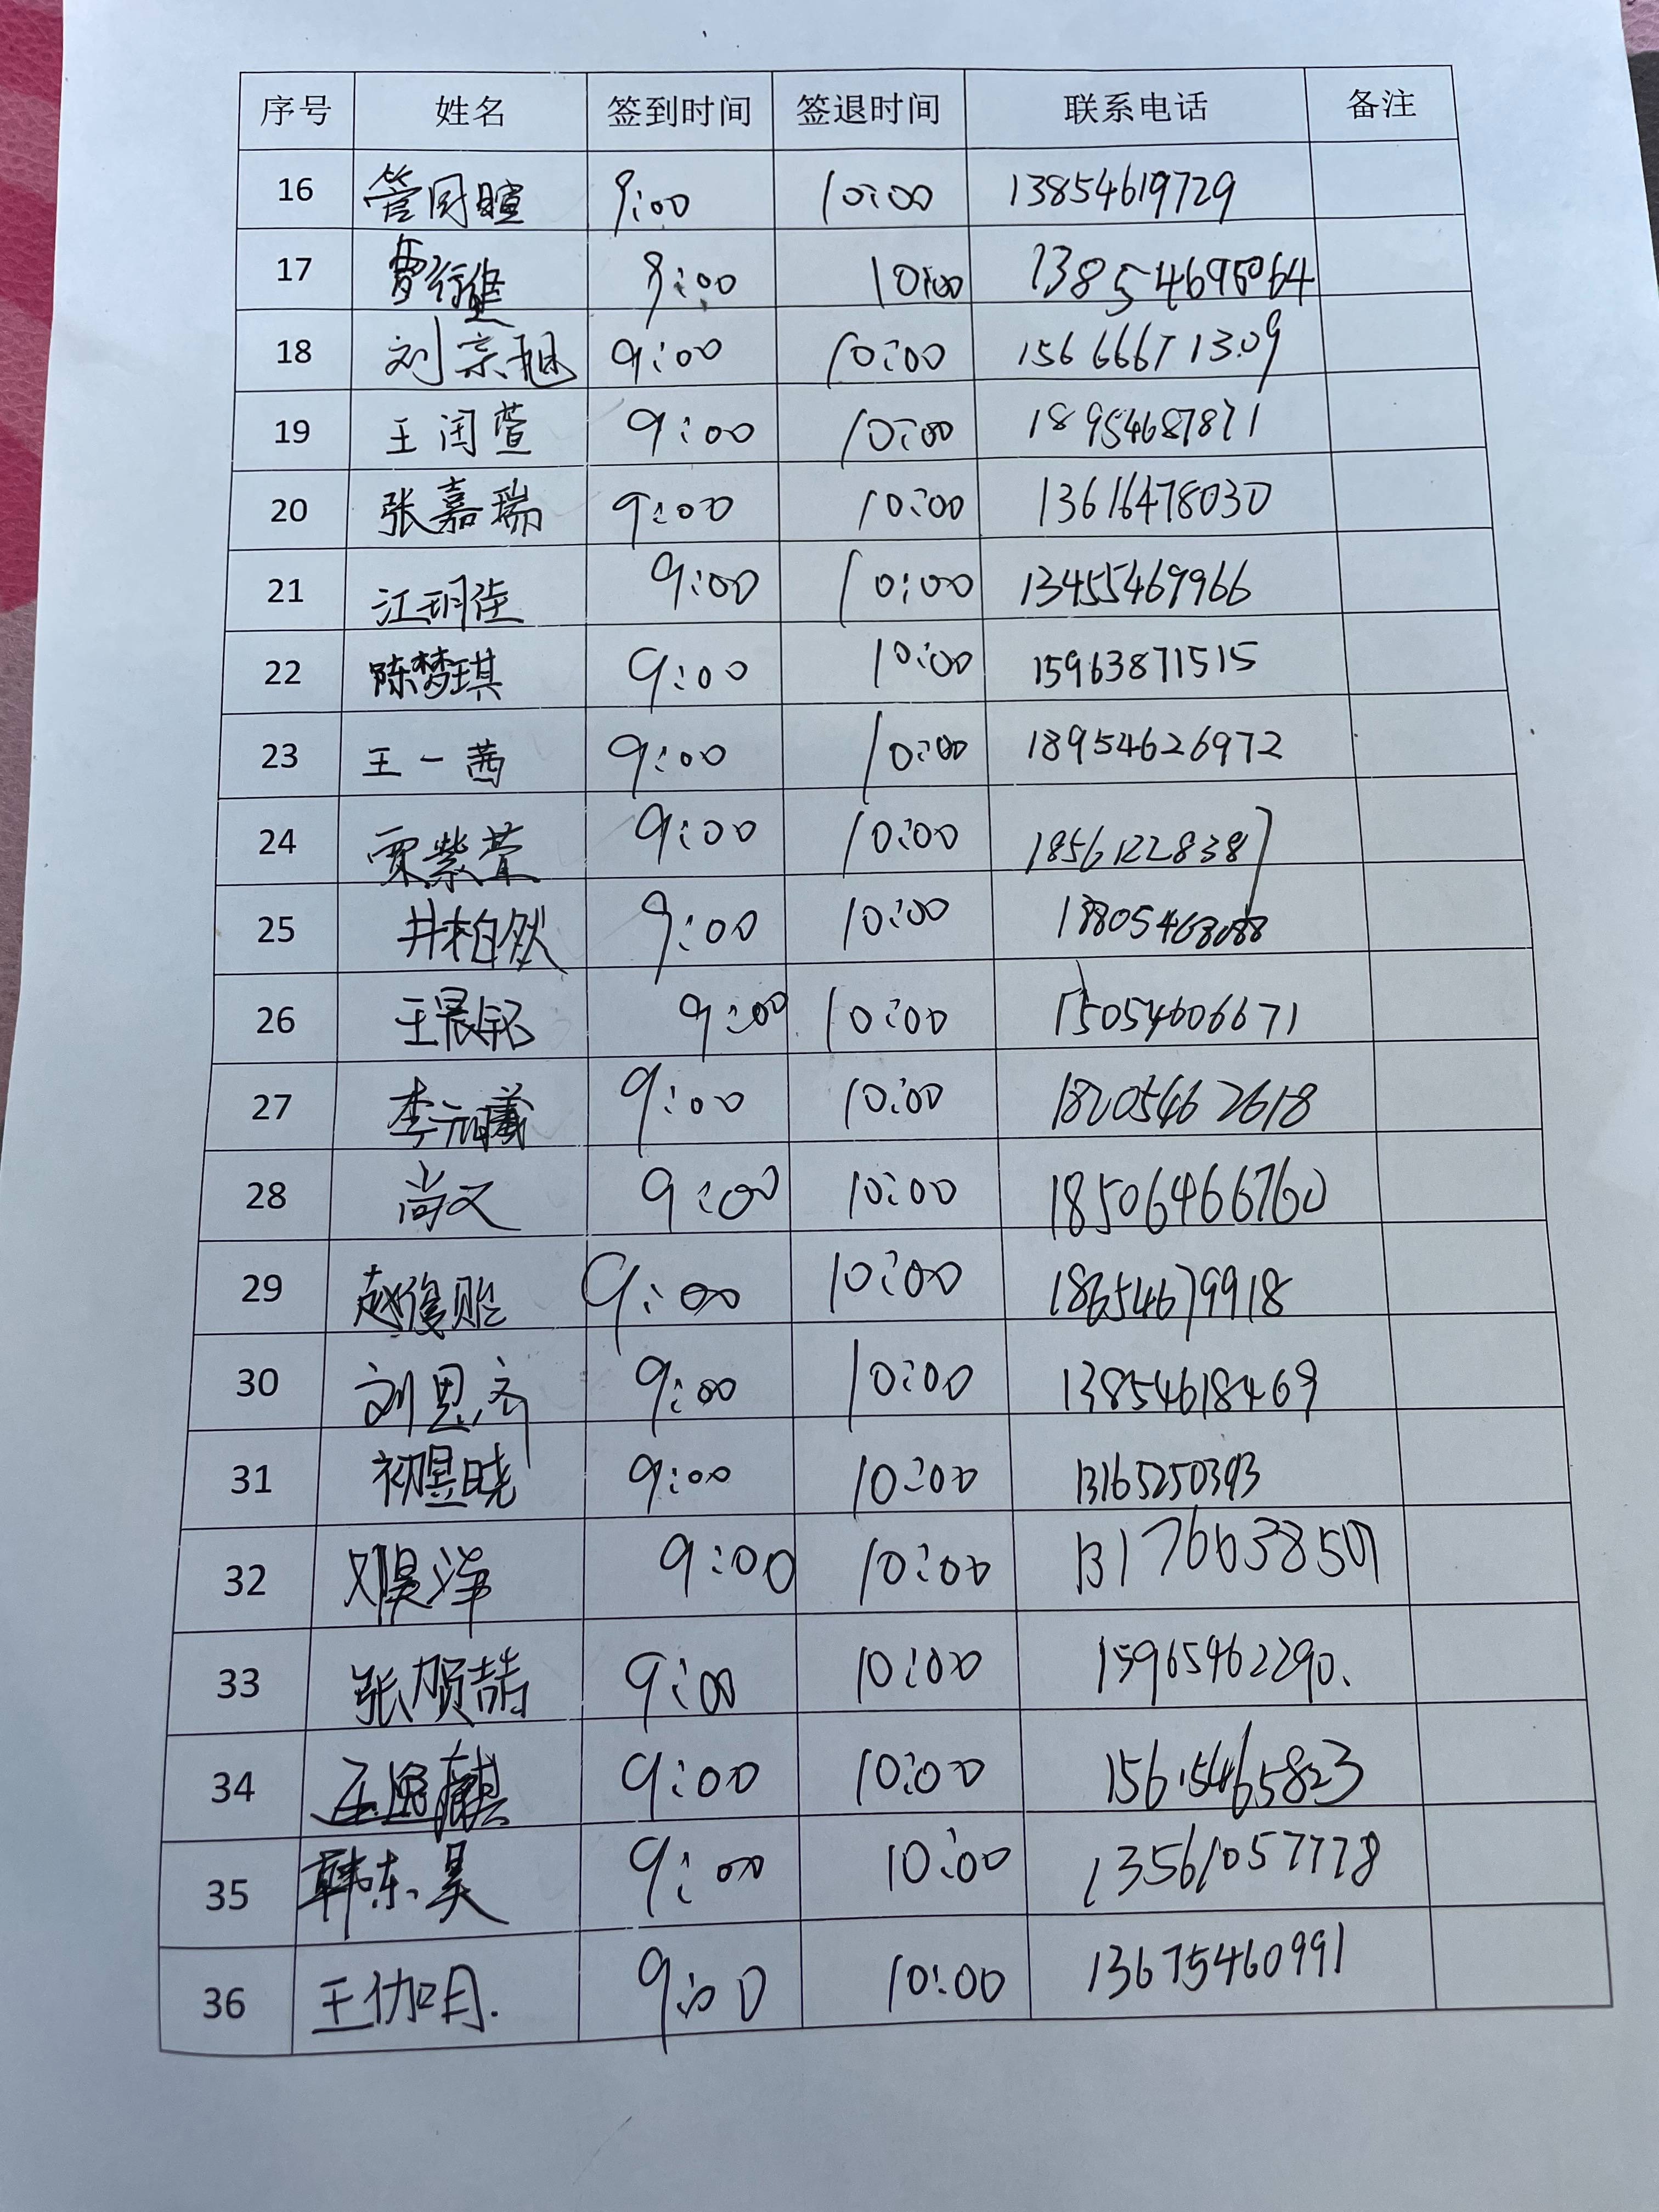 序号 姓名 签到时间 签退时间 联系电话 备注
16 管同暄 9:00 10:00 13854619729
17 9:00 10:00
18 刘宗旭 9:00 10:00 15666671309
19 王闰萱 9:00 10:00 18954687871
20 张嘉瑞 9:00 10:00 13616478030
21 江玥佳 9:00 10:00 13455469966
22 陈梦琪 9:00 10:00 15963871515
23 王一茜 9:00 10:00 18954626972
24 贾紫萱 9:00 10:00 18561228387
25 井柏然 9:00 10:00
26 王晨铭 9:00 10:00 15054606671
27 9:00 10:00 18205462618
28 尚文 9:00 10:00 18506466760
29 9:00 10:00 18654679918
30 刘思齐 9:00 10:00 13854618469
31 初昱晓 9:00 10:00 13165250393
32 刘昊泽 9:00 10:00
33 张颀喆 9:00 10:00 15965462290.
34 9:00 10:00 15615465823
35 韩东昊 9:00 10:00 13561057778
36 王伽月. 9:00 10:00 13675460991